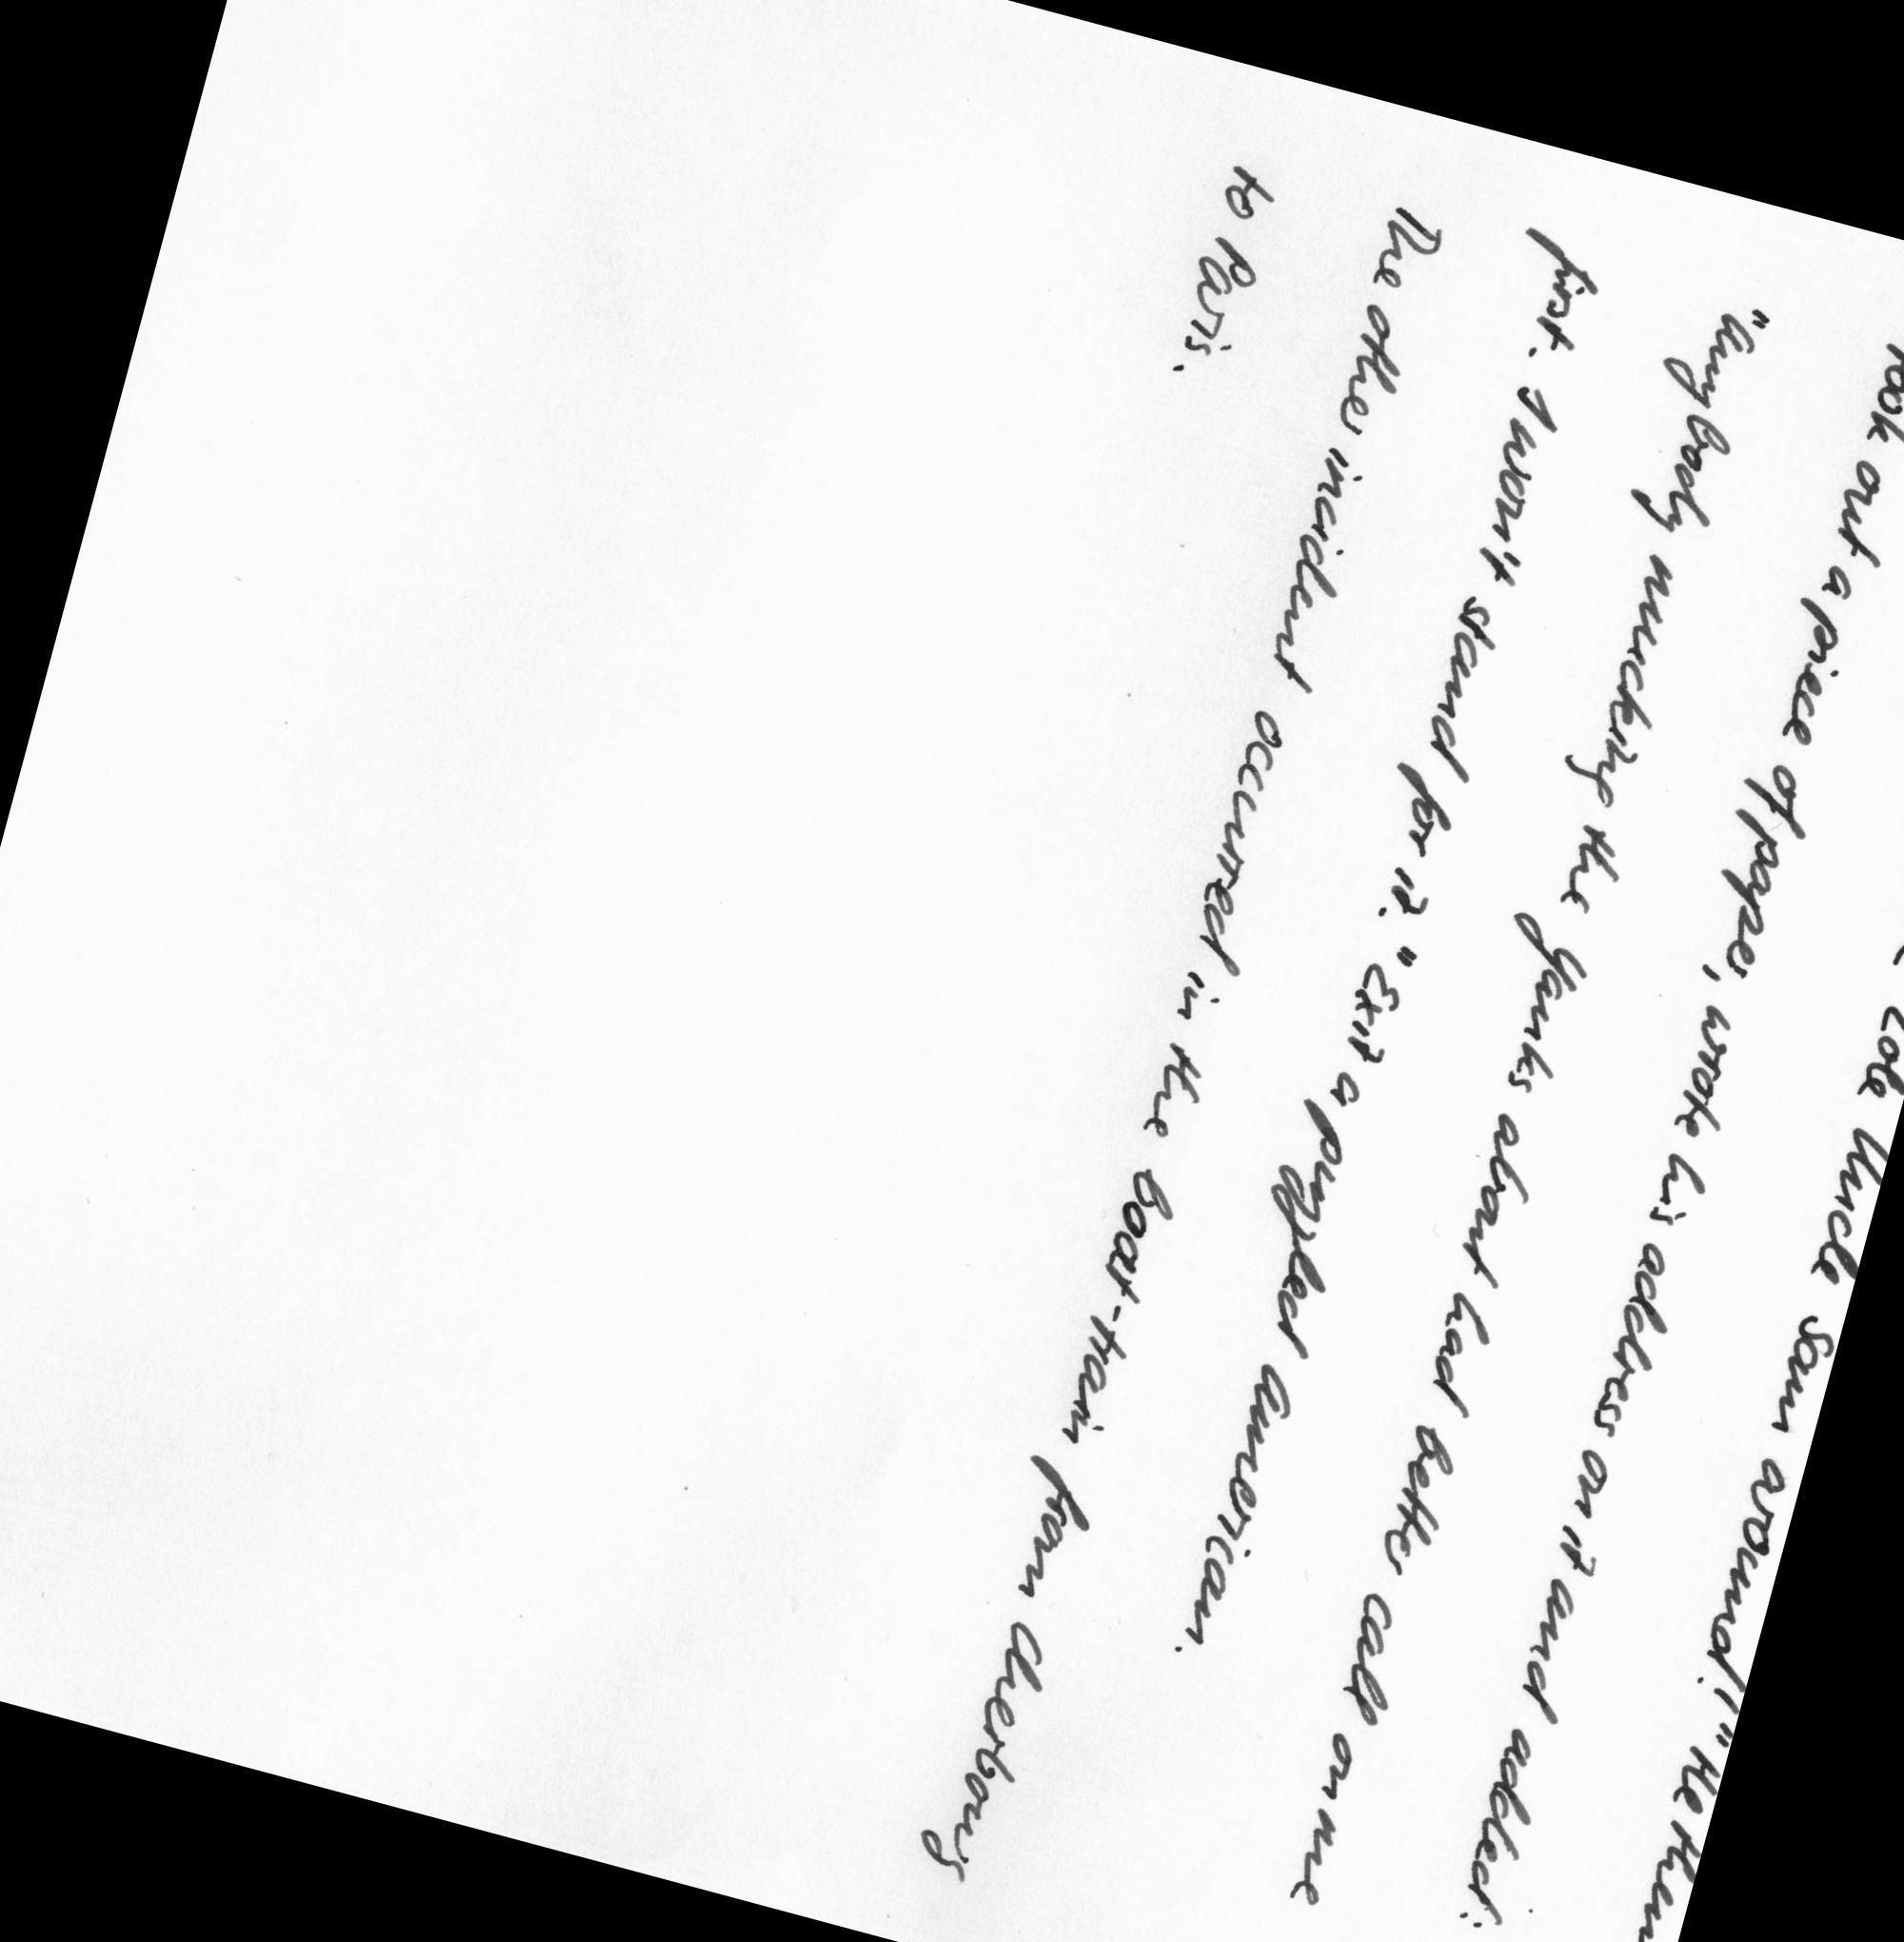 Uncle Sam around!" He then
took out a piece of paper, wrote his address on it and added:
"Anybody mucking the Yanks about had better call on me
first. I won't stand for it." Exit a puzzled American.
The other incident occurred in the boat-train from Cherbourg
to Paris.